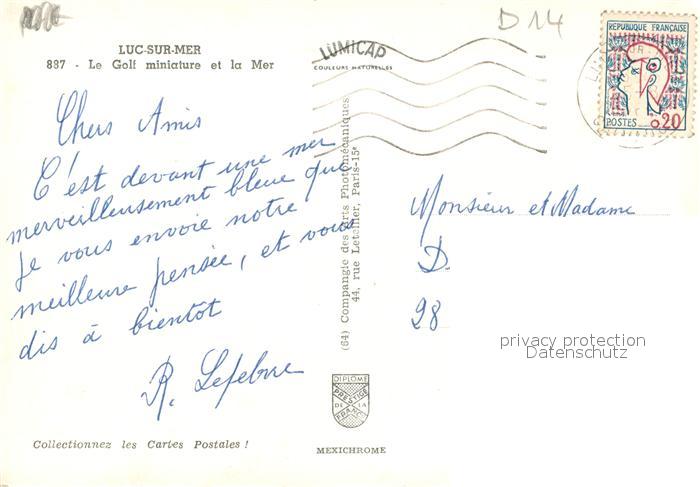 D14
LUC-SUR-MER
887 - Le Golf miniature et la Mer
LUMICAP
COULEURS NATURELLES
REPUBLIQUE FRANÇAISE
POSTES 0,20
Chers Amis
C'est devant une mer
merveilleusement bleue que
je vous envoie notre
meilleure pensée, et vous
dis à bientôt
R. Lefebvre
(64) Compangie des Arts Photomécaniques
44, rue Letellier, Paris-15e
Monsieur et Madame
D.
28
privacy protection
Datenschutz
DIPLOME
PRESTIGE
DE LA
FRANCE
Collectionnez les Cartes Postales !
MEXICHROME